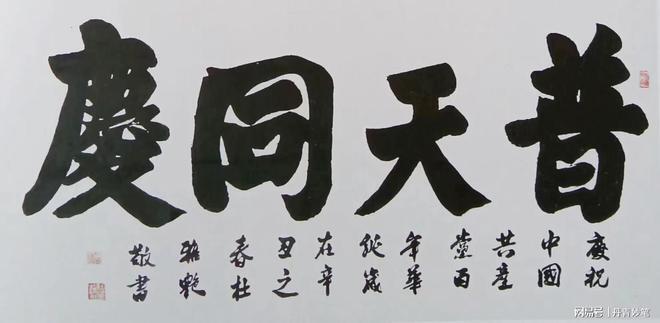 普天同慶
慶祝
中國
共產
黨百
年華
歲
在辛
丑之
春杜
敬書
网易号 | 丹青妙笔